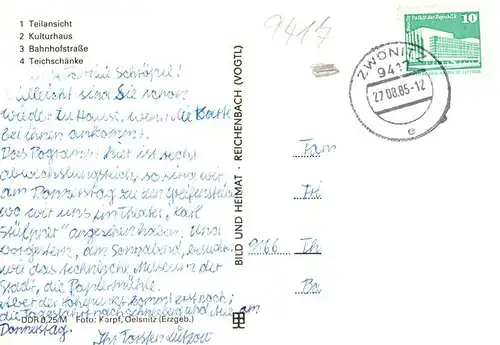 1 Teilansicht
2 Kulturhaus
3 Bahnhofstraße
4 Teichschänke
Schöpel!
vielleicht sind Sie schon
wieder zu Hause, wenn die Karte
bei Ihnen ankommt.
Das Programm hier ist sechs
abwechslungsreich, so sind wir
am Donnerstag zu den Greifenstein
wo wir uns im Theater "Karl
Stülpner" angesehen haben. Und
vorgestern, am Sonnabend, besuchten
wir das technische Museum der
Stadt, die Papiermühle.
Aber der Höhepunkt kommt erst noch;
die Tagesfahrt nach und am
Donnerstag.
Ihr Torsten
DDR 0,25/M Foto: Karpf, Oelsnitz (Erzgeb.)
BILD UND HEIMAT · REICHENBACH (VOGTL)
9417
ZWÖNITZ
9417
27.08.85-12
e
Palast der Republik
10
Fam
9166 Th
Ba